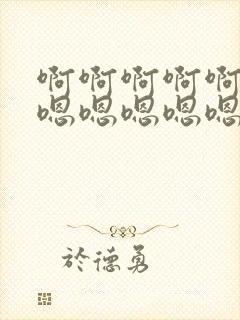 啊啊啊啊啊
嗯嗯嗯嗯嗯
於德勇